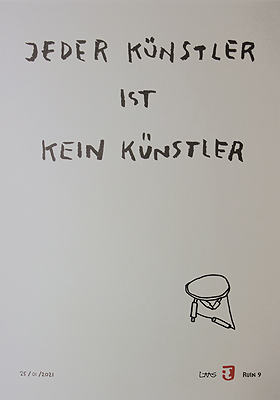 JEDER KÜNSTLER
IST
KEIN KÜNSTLER
25/01/2021
RUIN 9